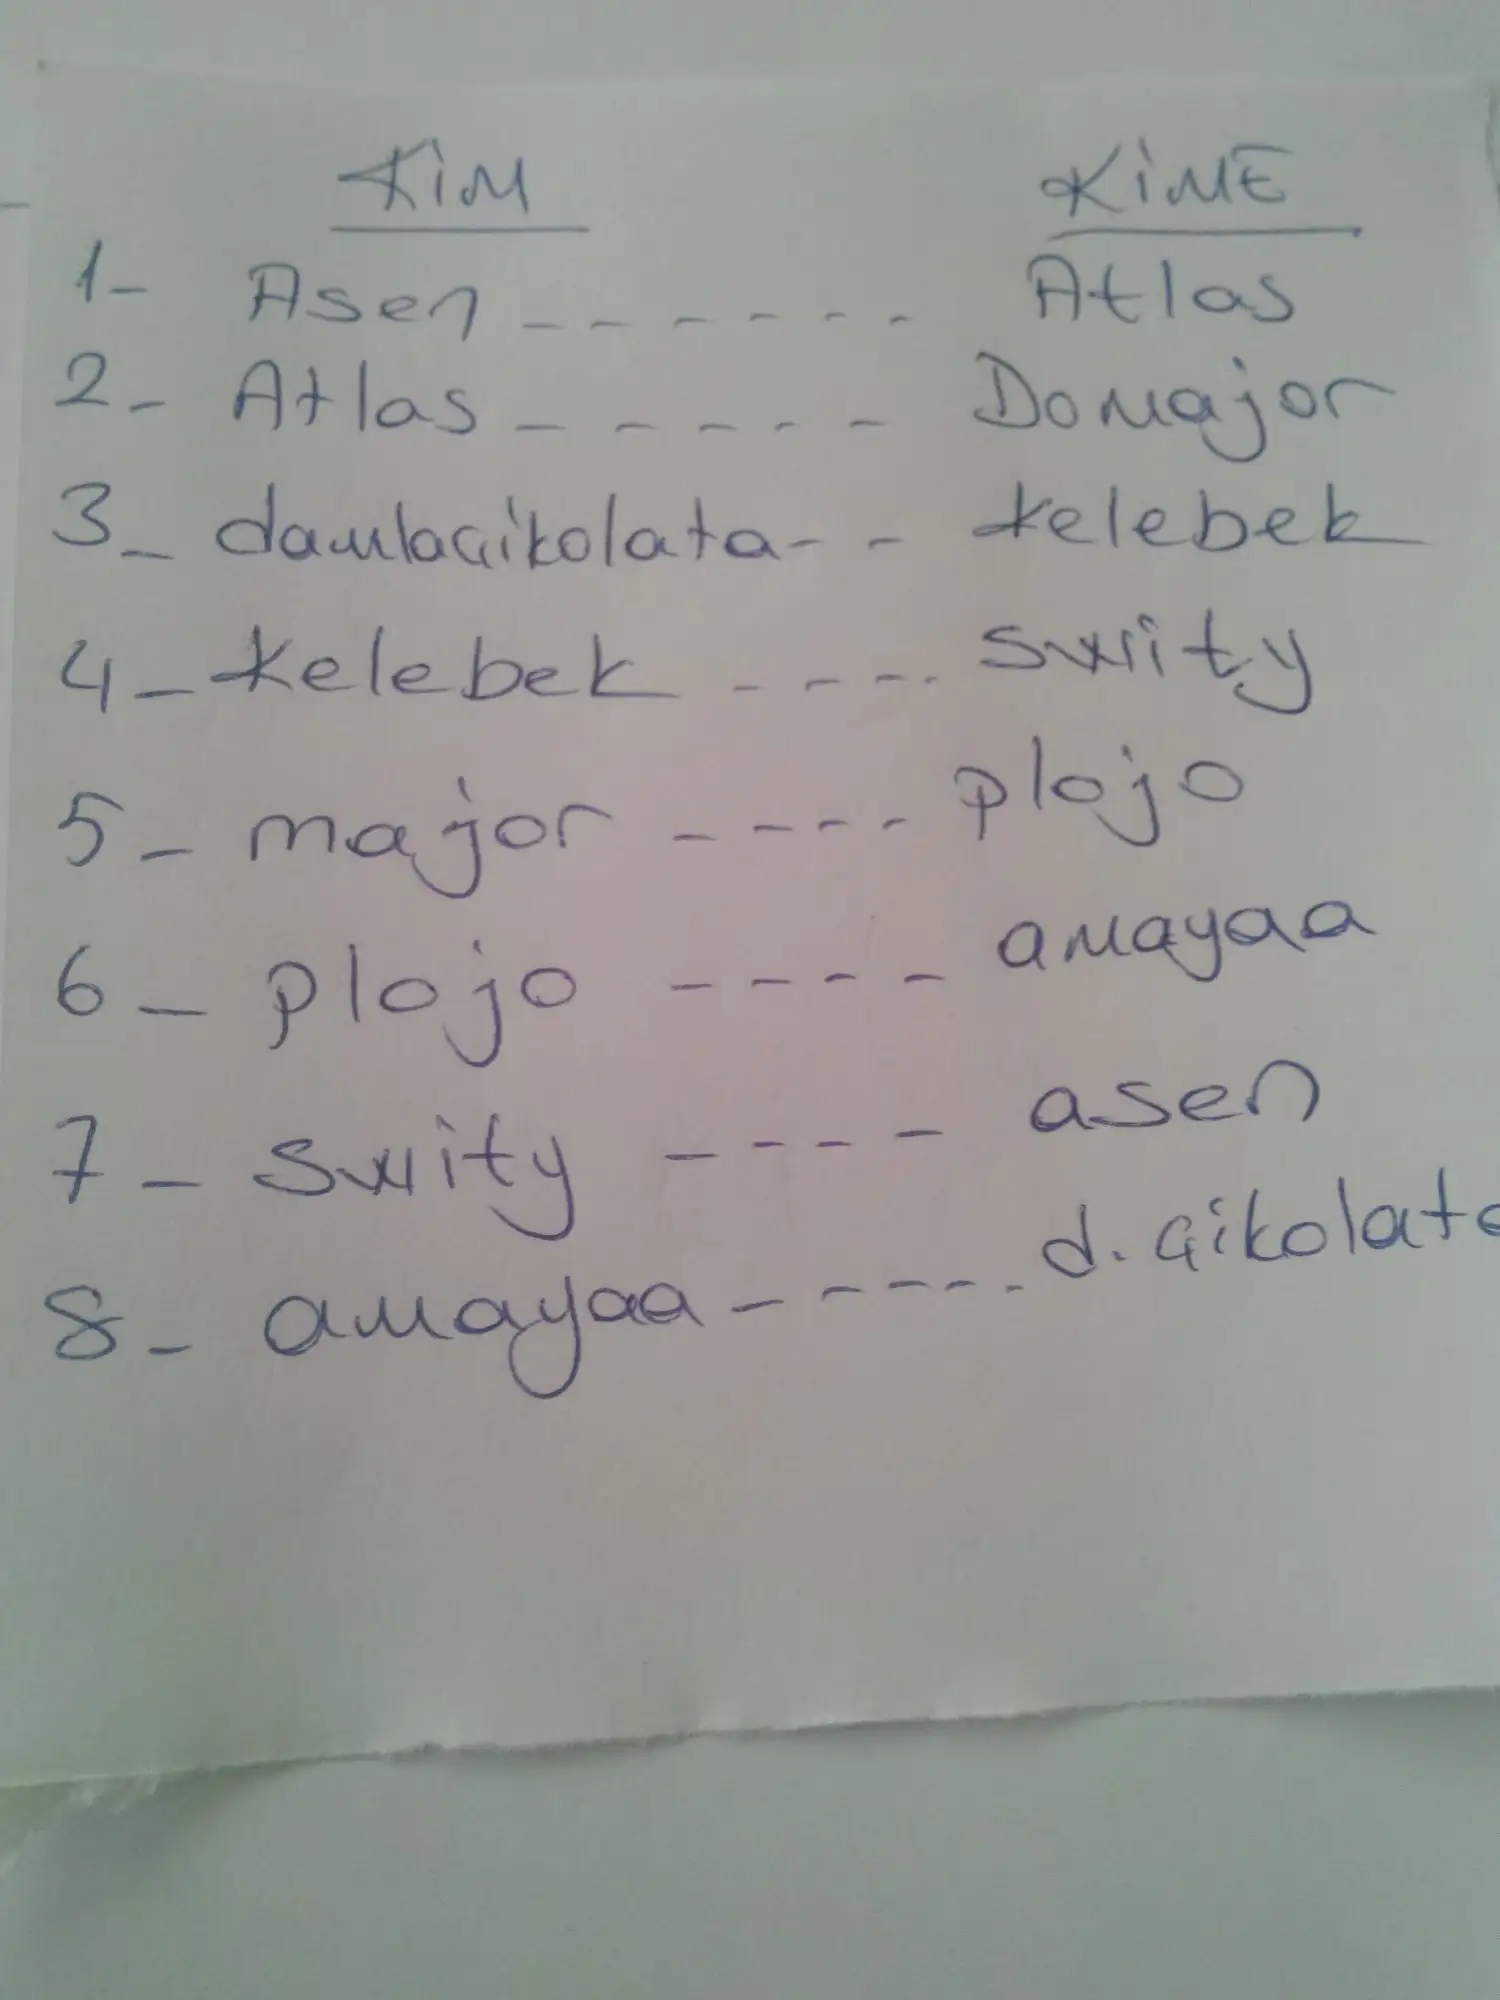 KİM KİME
1- Asen ------ Atlas
2- Atlas ----- Domajor
3- damlaçikolata -- kelebek
4- kelebek ---- swity
5- major ---- plojo
6- plojo ---- amayaa
7- swity ---- asen
8- amayaa ----- d. çikolata